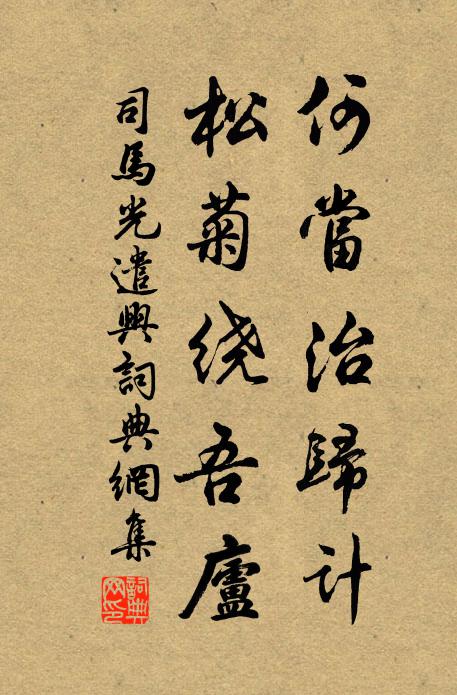 何當治歸計
松菊绕吾廬
司馬光遣興詞典網集
詞典
网印